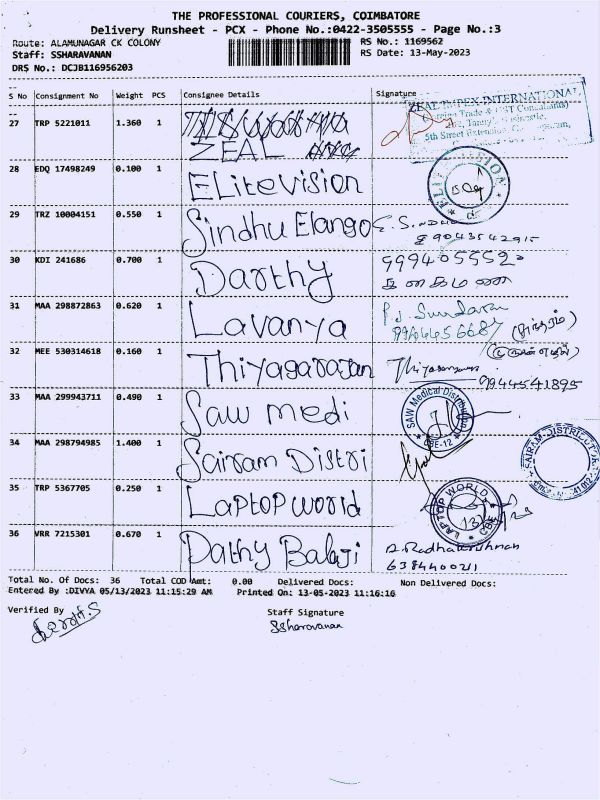 THE PROFESSIONAL COURIERS, COIMBATORE
Delivery Runsheet - PCX - Phone No.:0422-3505555 - Page No.:3
Route: ALAMUNAGAR CK COLONY RS No.: 1169562
Staff: SSHARAVANAN RS Date: 13-May-2023
DRS No.: DCJB116956203
S No Consignment No Weight PCS Consignee Details Signature
27 TRP 5221011 1.360 1 ZEAL ZEAL IMPEX INTERNATIONAL
28 EDQ 17498249 0.100 1 ELitevision ELITE VISION
29 TRZ 10004151 0.550 1 Sindhu Elango E. Sindhu
9043542915
30 KDI 241686 0.700 1 Darthy 9994055520
கனகமணி
31 MAA 298872863 0.620 1 Lavanya P.J. Sundaram
(சுந்தரம்)
32 MEE 530314618 0.160 1 Thiyagarajan Thiyagarajan
9944541895
33 MAA 299943711 0.490 1 Saw medi SAW Medical Distributor
CBE-12
34 MAA 298794985 1.400 1 Sairam Distri SAIRAM DISTRICT
35 TRP 5367705 0.250 1 LaPtoP world LAPTOP WORLD
36 VRR 7215301 0.670 1 Dathy Balaji D. Radhakrishnan
6384400211
Total No. Of Docs: 36 Total COD Amt: 0.00 Delivered Docs: Non Delivered Docs:
Entered By :DIVYA 05/13/2023 11:15:29 AM Printed On: 13-05-2023 11:16:16
Verified By Staff Signature
SSharavanan